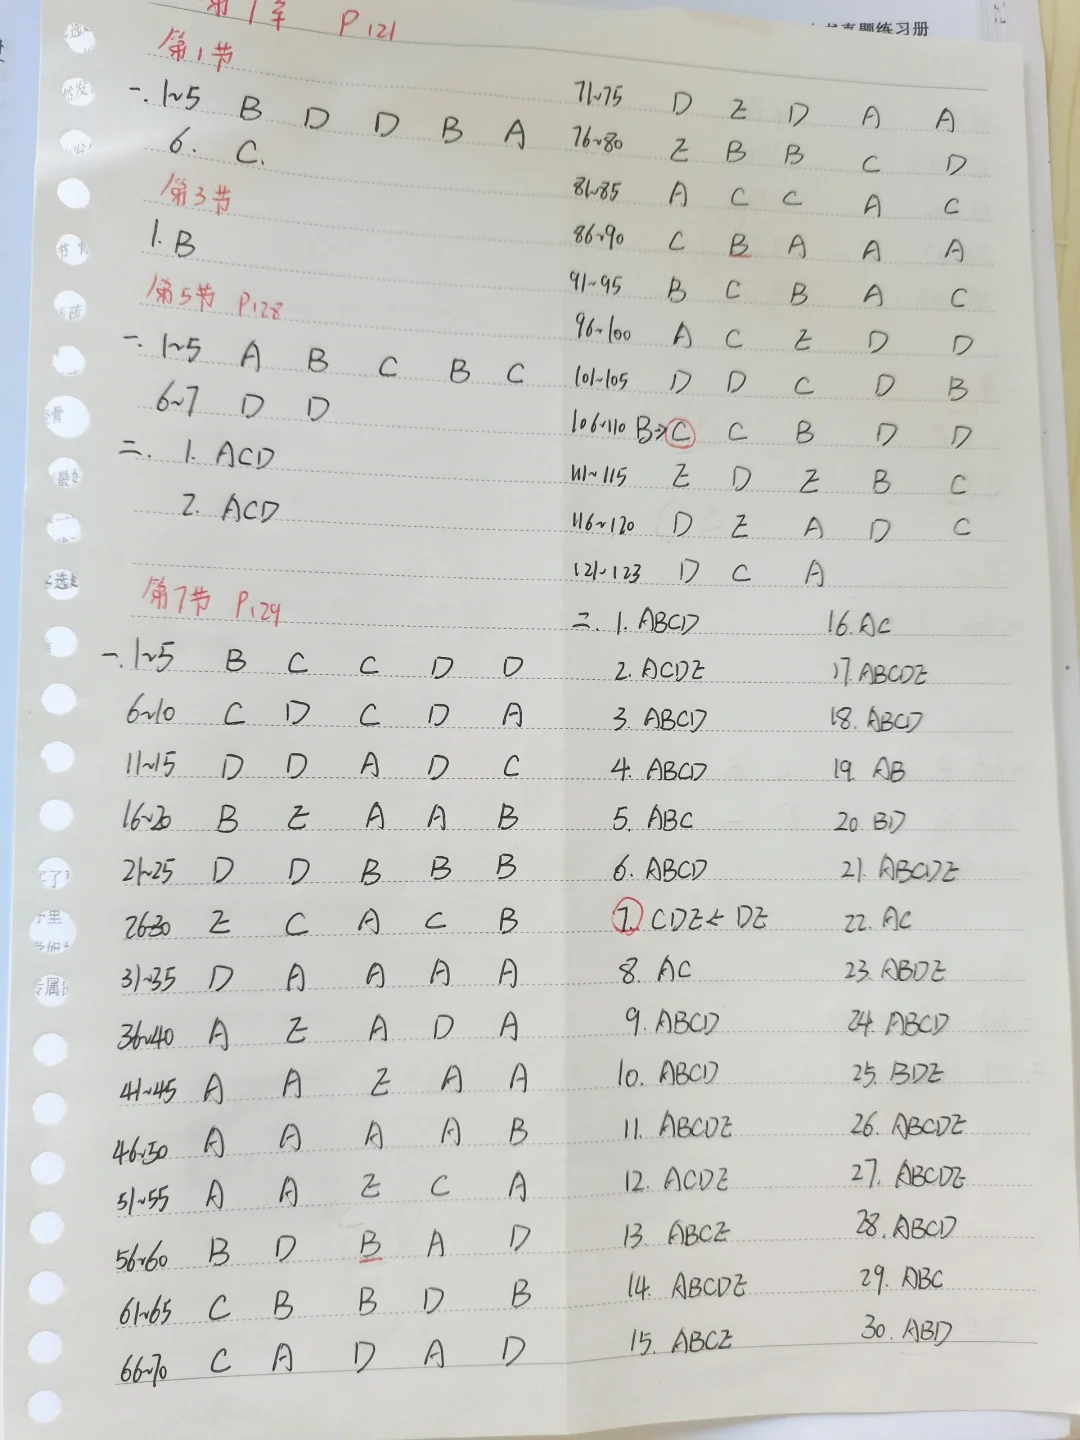 第1章 P121
第1节
一. 1~5 B D D B A
6. C.
第3节
1. B
第5节 P128
一. 1~5 A B C B C
6~7 D D
二. 1. ACD
2. ACD
第7节 P129
一. 1~5 B C C D D
6~10 C D C D A
11~15 D D A D C
16~20 B E A A B
21~25 D D B B B
26~30 E C A C B
31~35 D A A A A
36~40 A E A D A
41~45 A A E A A
46~50 A A A A B
51~55 A A E C A
56~60 B D B A D
61~65 C B B D B
66~70 C A D A D
71~75 D E D A A
76~80 E B B C D
81~85 A C C A C
86~90 C B A A A
91~95 B C B A C
96~100 A C E D D
101~105 D D C D B
106~110 B→C C B D D
111~115 E D E B C
116~120 D E A D C
121~123 D C A
二. 1. ABCD
2. ACDE
3. ABCD
4. ABCD
5. ABC
6. ABCD
7. CDE← DE
8. AC
9. ABCD
10. ABCD
11. ABCDE
12. ACDE
13. ABCE
14. ABCDE
15. ABCE
16. AC
17. ABCDE
18. ABCD
19. AB
20. BD
21. ABCDE
22. AC
23. ABDE
24. ABCD
25. BDE
26. ABCDE
27. ABCDE
28. ABCD
29. ABC
30. ABD
真题练习册